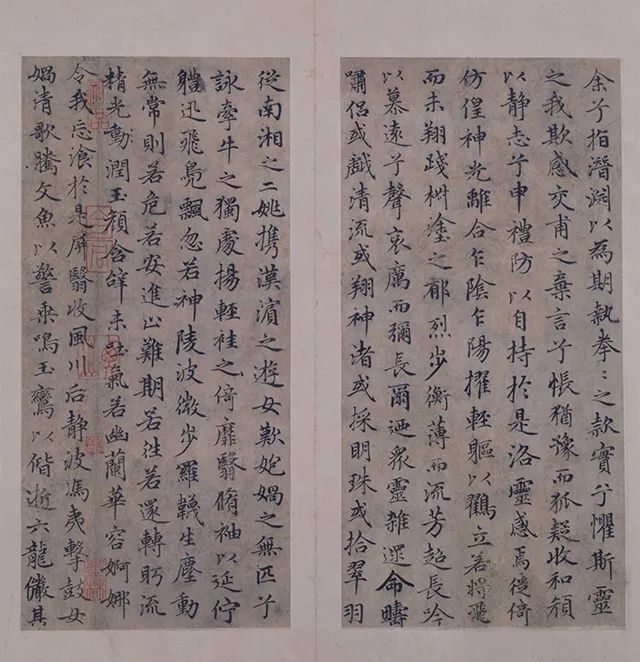 余兮指潛淵以為期執拳〻之款實兮懼斯靈
之我欺感交甫之棄言兮悵猶豫而狐疑收和顏
以靜志兮申禮防以自持於是洛靈感焉徙倚
仿偟神光離合乍陰乍陽擢輕軀以鶴立若將飛
而未翔踐椒塗之郁烈步衡薄而流芳超長吟
以慕遠兮聲哀厲而彌長爾迺眾靈雜遝命疇
嘯侶或戲清流或翔神渚或採明珠或拾翠羽
從南湘之二姚攜漢濱之遊女歎匏媧之無匹兮
詠牽牛之獨處揚輕袿之倚靡翳脩袖以延佇
軆迅飛鳧飄忽若神陵波微步羅韈生塵動
無常則若危若安進止難期若往若還轉眄流
精光動潤玉顏含辭未吐氣若幽蘭華容婀娜
令我忘湌於是屏翳收風川后靜波馮夷擊鼓女
媧清歌騰文魚以警乘鳴玉鸞以偕逝六龍儼其